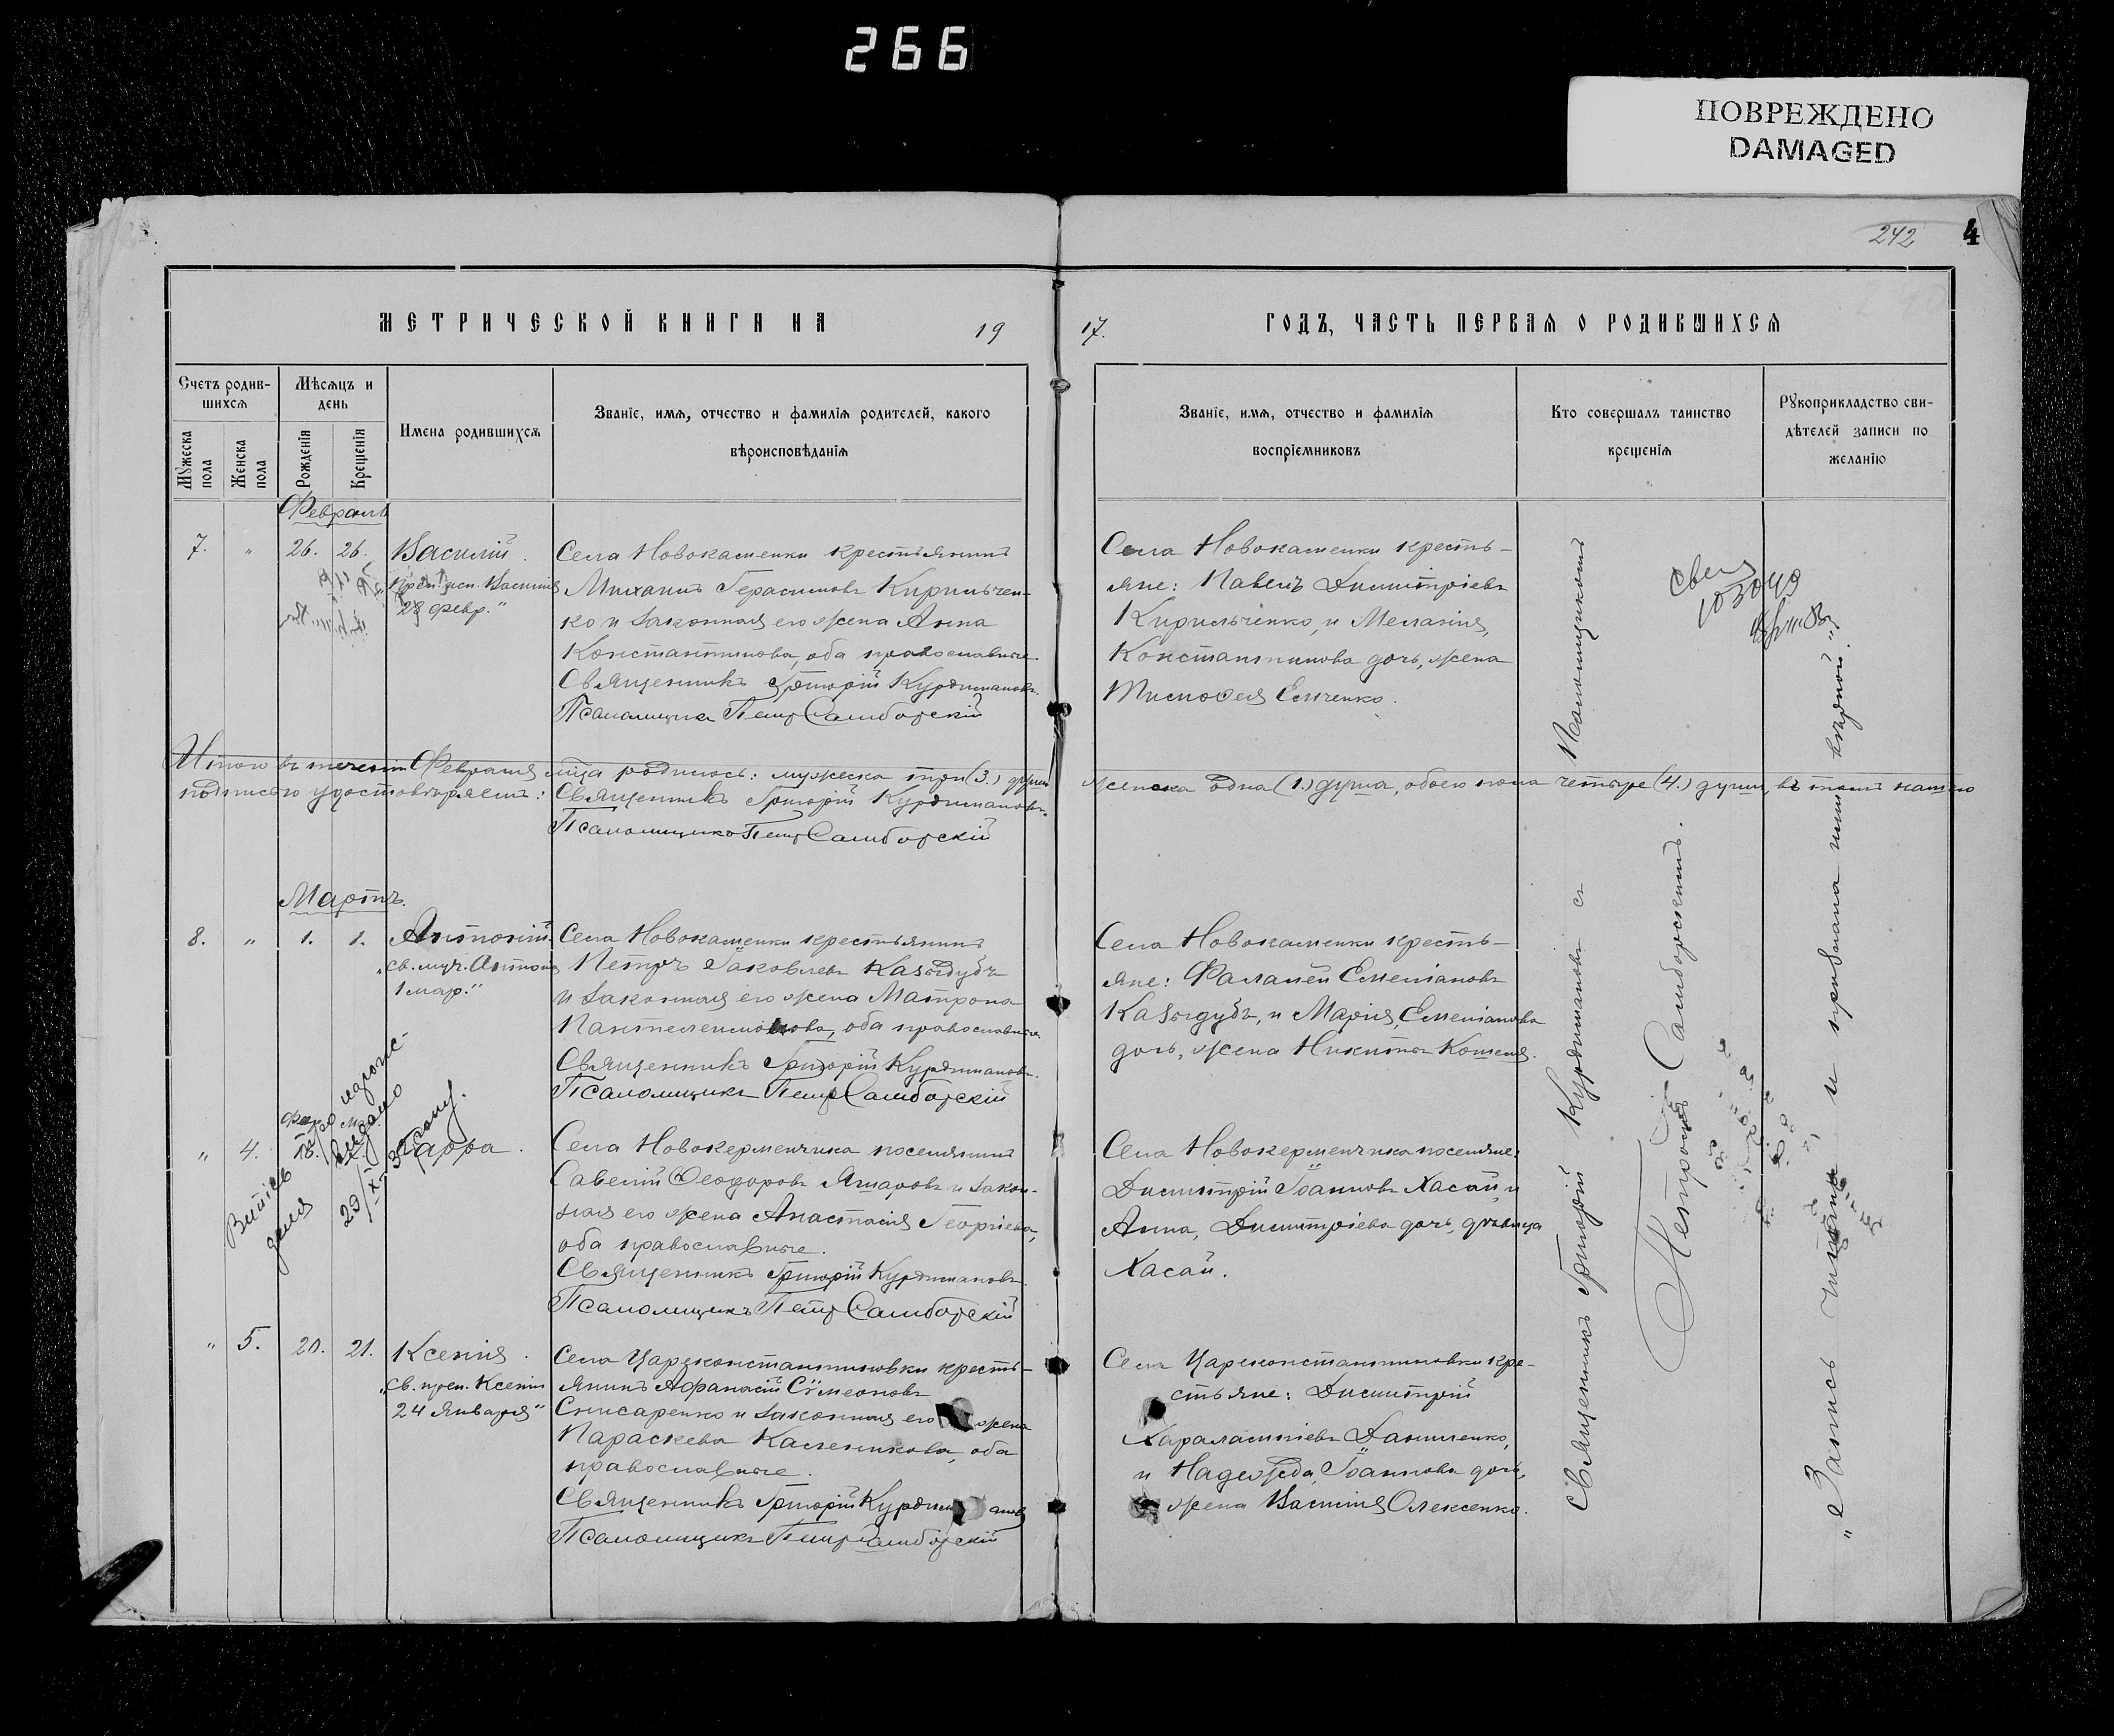 266
ПОВРЕЖДЕНО
DAMAGED
242
4
МЕТРИЧЕСКОЙ КНИГИ НА 19
17. ГОДЪ, ЧАСТЬ ПЕРВАЯ О РОДИВШИХСЯ
Счетъ родив-
шихся
Мужеска пола
Женска пола
Мѣсяцъ и
день
Рожденія
Крещенія
Имена родившихся
Званіе, имя, отчество и фамилія родителей, какого
вѣроисповѣданія
Званіе, имя, отчество и фамилія
воспріемниковъ
Кто совершалъ таинство
крещенія
Рукоприкладство сви-
дѣтелей записи по
желанію
Февраль
7. " 26. 26. Василій.
Преп. исп. Василія
28 февр."
Села Новокаменки крестьянинъ
Михаилъ Герасимовъ Кирильчен-
ко и законная его жена Анна
Константинова, оба православные.
Священникъ Григорій Курдимановъ.
Псаломщикъ Петр Самборскій
Села Новокаменки кресть-
яне: Павелъ Димитріевъ
Кирильченко, и Меланія,
Константинова дочь, жена
Тимоѳея Емченко.
Итого въ теченіи Февраля м-ца родилось: мужеска три (3.) души
женска одна (1.) душа, обоего пола четыре (4.) души, въ томъ нашею
подписью удостовѣряемъ:
Священникъ Григорій Курдимановъ.
Псаломщикъ Петр Самборскій
Мартъ.
8. " 1. 1. Антоній.
"св. муч. Антонія
1 мар."
Села Новокаменки крестьянинъ
Петръ Іаковлевъ Казыдубъ
и законная его жена Матрона
Пантелеимонова, оба православные.
Священникъ Григорій Курдимановъ.
Псаломщикъ Петр Самборскій
Села Новокаменки кресть-
яне: Фалалей Емеліановъ
Казыдубъ, и Марія, Емеліанова
дочь, жена Никиты Кошеля.
" 4. 18.
Витяг
видано
29/X
Села Новокерменчика поселянинъ
Савелій Ѳеодоровъ Яшаровъ и закон-
ная его жена Анастасія Георгіева,
оба православные.
Священникъ Григорій Курдимановъ.
Псаломщикъ Петр Самборскій
Села Новокерменчика поселяне:
Димитрій Іоанновъ Хасай, и
Анна, Димитріева дочь, дѣвица
Хасай.
" 5. 20. 21. Ксенія.
"св. преп. Ксеніи
24 Января"
Села Цареконстантиновки кресть-
янинъ Аѳанасій Сѵмеоновъ
Снисаренко и законная его жена
Параскева Калиникова, оба
православные.
Священникъ Григорій Курдимановъ
Псаломщикъ Петр Самборскій
Села Цареконстантиновки кре-
стьяне: Димитрій
Харалампіевъ Даниленко,
и Надежда, Іоаннова дочь,
жена Василія Олексенко.
Священникъ Григорій Курдимановъ съ Псаломщикомъ
Петромъ Самборскимъ.
"Запись читана и признана вѣрной."